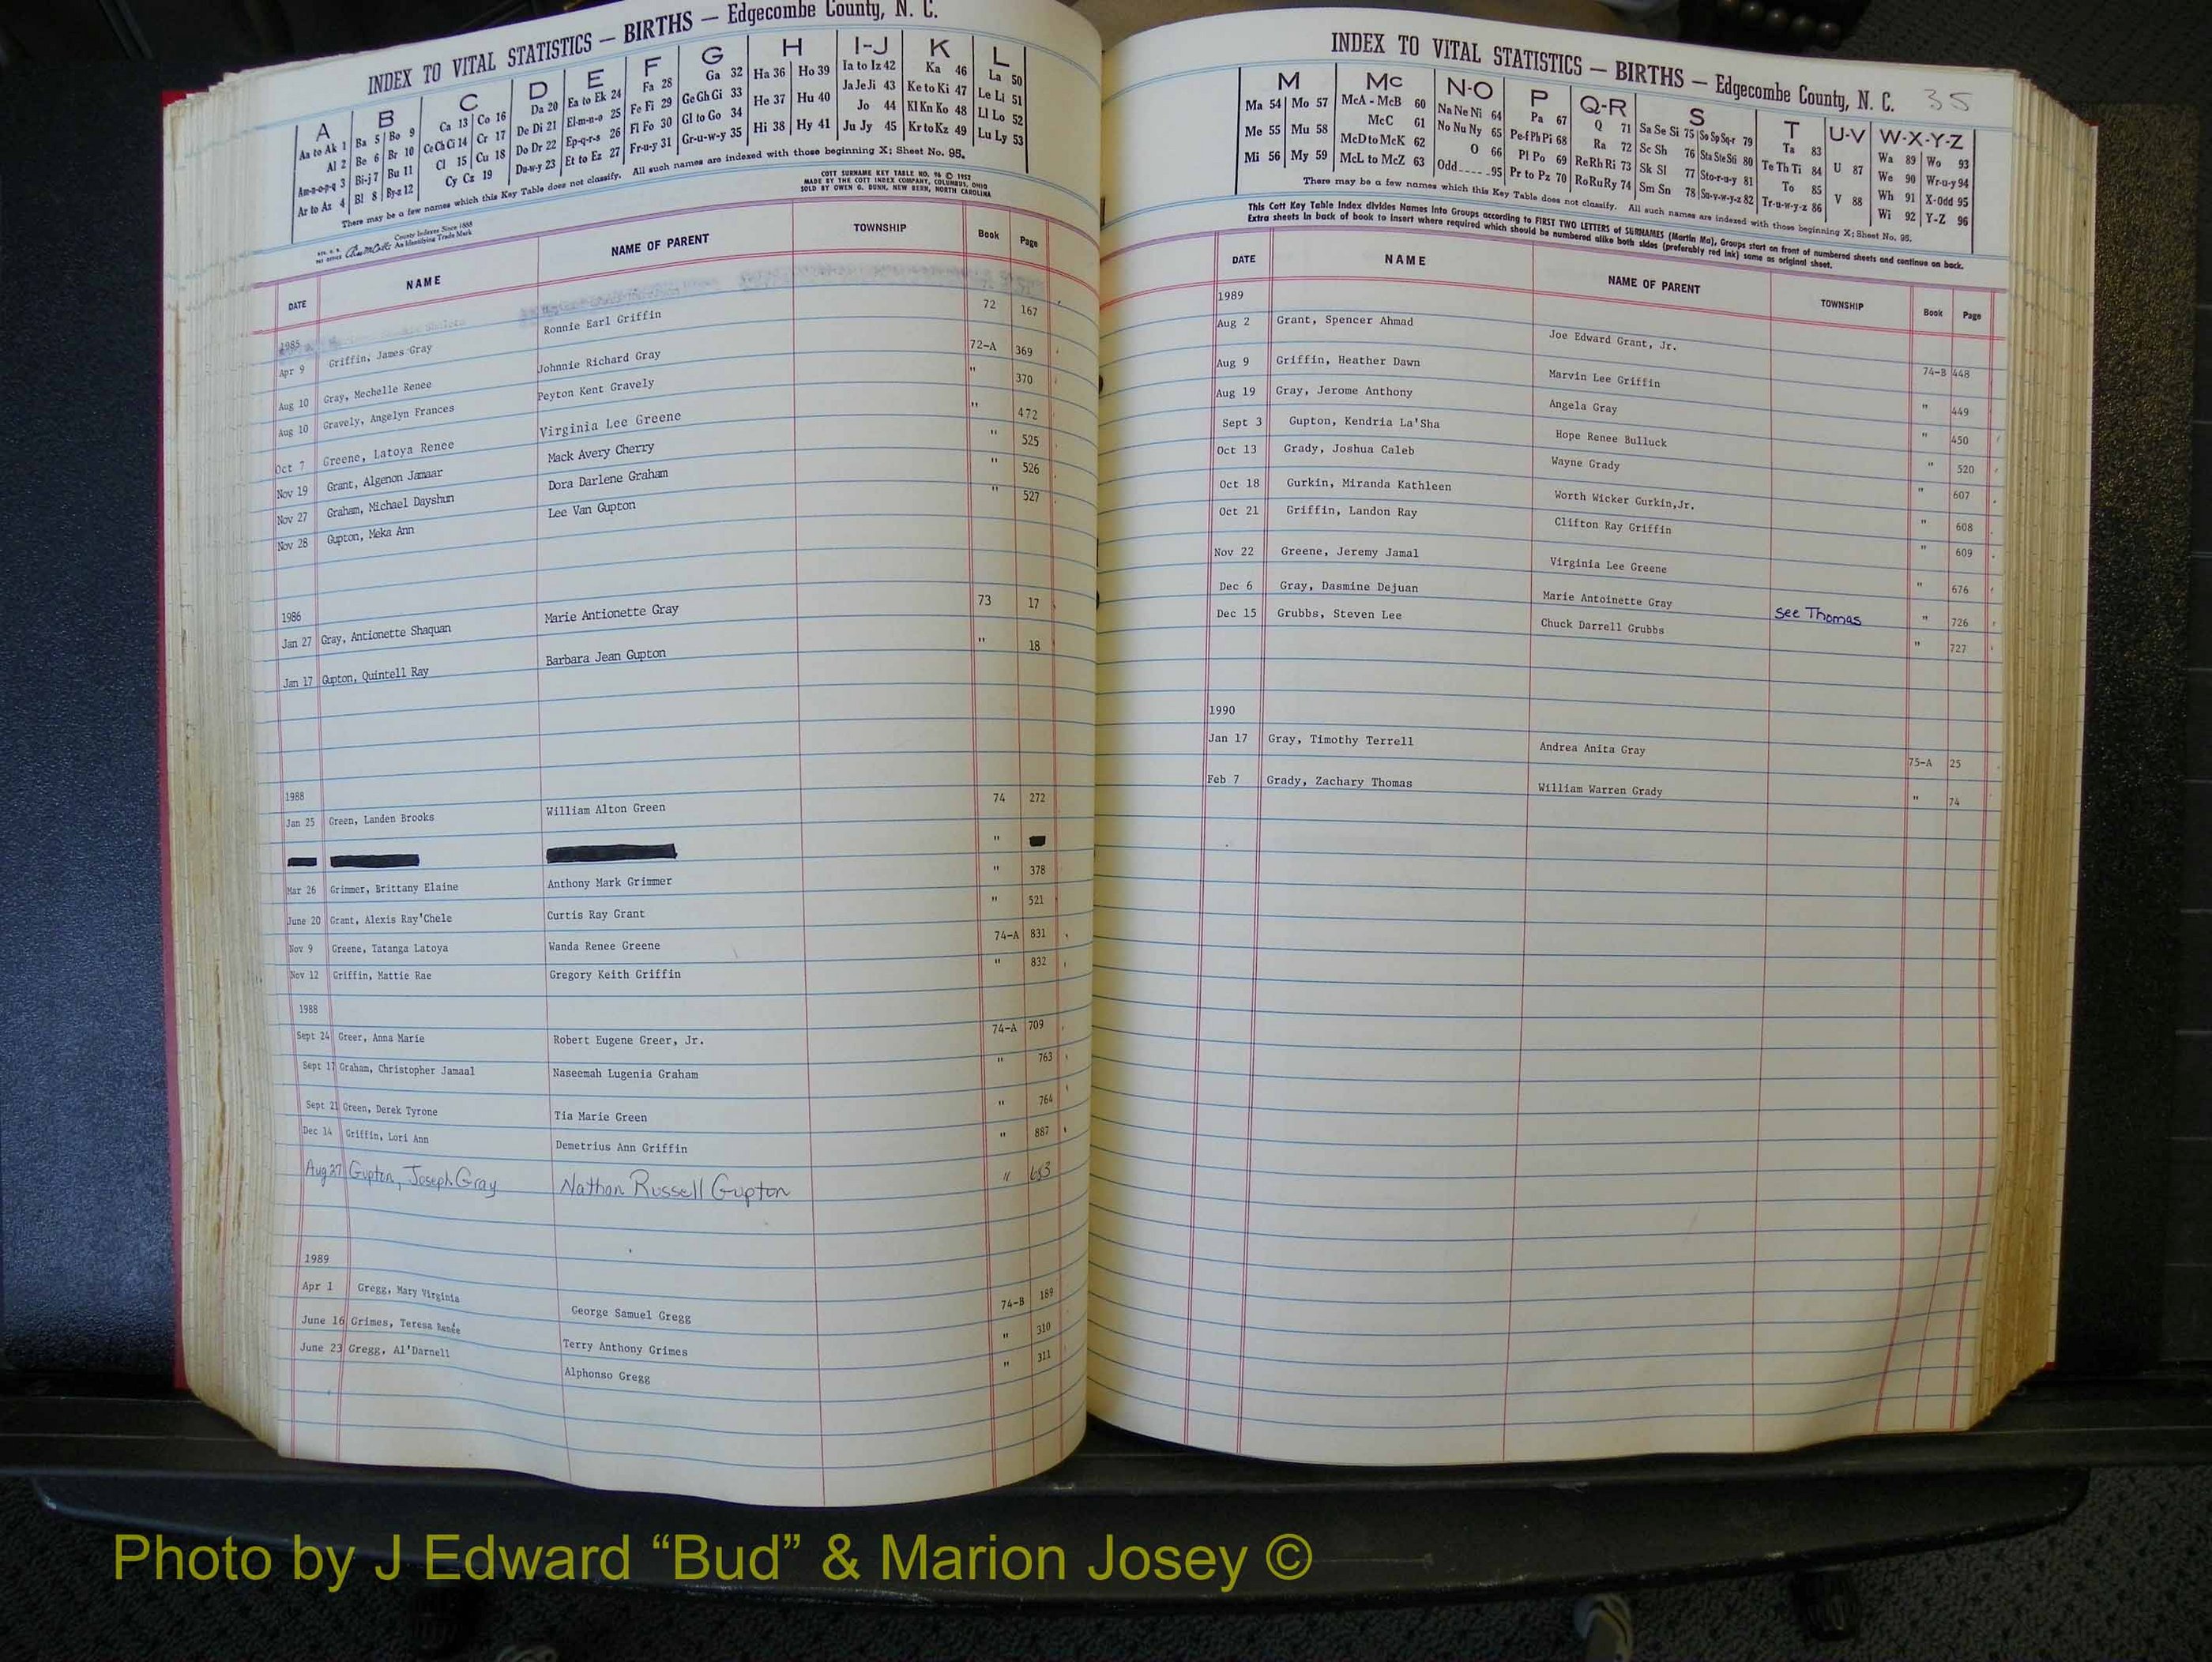 INDEX TO VITAL STATISTICS — BIRTHS — Edgecombe County, N. C.
A B C D E F G H I-J K L
Aa to Ak 1 Ba 5 Bo 9 Ca 13 Co 16 Da 20 Ea to Ek 24 Fa 28 Ga 32 Ha 36 Ho 39 Ia to Iz 42 Ka 46 La 50
Al 2 Be 6 Br 10 Ce Ch Ci 14 Cr 17 De Di 21 El-m-n-o 25 Fe Fi 29 Ge Gh Gi 33 He 37 Hu 40 Ja Je Ji 43 Ke to Ki 47 Le Li 51
Am-n-o-p-q 3 Bi-j 7 Bu 11 Cl 15 Cu 18 Do Dr 22 Ep-q-r-s 26 Fl Fo 30 Gl to Go 34 Hi 38 Hy 41 Jo 44 Kl Kn Ko 48 Ll Lo 52
Ar to Az 4 Bl 8 By-z 12 Cy Cz 19 Du-w-y 23 Et to Ez 27 Fr-u-y 31 Gr-u-w-y 35 Ju Jy 45 Kr to Kz 49 Lu Ly 53
There may be a few names which this Key Table does not classify. All such names are indexed with those beginning X; Sheet No. 95.
COTT SURNAME KEY TABLE NO. 96 © 1952
MADE BY THE COTT INDEX COMPANY, COLUMBUS, OHIO
SOLD BY OWEN G. DUNN, NEW BERN, NORTH CAROLINA
County Indexes Since 1888
An Identifying Trade Mark
DATE NAME NAME OF PARENT TOWNSHIP Book Page
1985
Apr 9 Griffin, James Gray Ronnie Earl Griffin 72 167
Aug 10 Gray, Mechelle Renee Johnnie Richard Gray 72-A 369
Aug 10 Gravely, Angelyn Frances Peyton Kent Gravely " 370
Oct 7 Greene, Latoya Renee Virginia Lee Greene " 472
Nov 19 Grant, Algenon Jamaar Mack Avery Cherry " 525
Nov 27 Graham, Michael Dayshun Dora Darlene Graham " 526
Nov 28 Gupton, Meka Ann Lee Van Gupton " 527
1986
Jan 27 Gray, Antionette Shaquan Marie Antionette Gray 73 17
Jan 17 Gupton, Quintell Ray Barbara Jean Gupton " 18
1988
Jan 25 Green, Landen Brooks William Alton Green 74 272
"
Mar 26 Grimmer, Brittany Elaine Anthony Mark Grimmer " 378
June 20 Grant, Alexis Ray'Chele Curtis Ray Grant " 521
Nov 9 Greene, Tatanga Latoya Wanda Renee Greene 74-A 831
Nov 12 Griffin, Mattie Rae Gregory Keith Griffin " 832
1988
Sept 24 Greer, Anna Marie Robert Eugene Greer, Jr. 74-A 709
Sept 17 Graham, Christopher Jamaal Naseemah Lugenia Graham " 763
Sept 21 Green, Derek Tyrone Tia Marie Green " 764
Dec 14 Griffin, Lori Ann Demetrius Ann Griffin " 887
Aug 27 Gupton, Joseph Gray Nathan Russell Gupton " 683
1989
Apr 1 Gregg, Mary Virginia George Samuel Gregg 74-B 189
June 16 Grimes, Teresa Renée Terry Anthony Grimes " 310
June 23 Gregg, Al'Darnell Alphonso Gregg " 311
INDEX TO VITAL STATISTICS — BIRTHS — Edgecombe County, N. C. 35
M Mc N-O P Q-R S T U-V W-X-Y-Z
Ma 54 Mo 57 McA - McB 60 Na Ne Ni 64 Pa 67 Q 71 Sa Se Si 75 So Sp Sq-r 79 Ta 83 U 87 Wa 89 Wo 93
Me 55 Mu 58 McC 61 No Nu Ny 65 Pe-f Ph Pi 68 Ra 72 Sc Sh 76 Sta Ste Sti 80 Te Th Ti 84 V 88 We 90 Wr-u-y 94
Mi 56 My 59 McD to McK 62 O 66 Pl Po 69 Re Rh Ri 73 Sk Sl 77 Sto-r-u-y 81 To 85 Wh 91 X-Odd 95
McL to McZ 63 Odd 95 Pr to Pz 70 Ro Ru Ry 74 Sm Sn 78 Su-v-w-y-z 82 Tr-u-w-y-z 86 Wi 92 Y-Z 96
There may be a few names which this Key Table does not classify. All such names are indexed with those beginning X; Sheet No. 95.
This Cott Key Table Index divides Names into Groups according to FIRST TWO LETTERS of SURNAMES (Martin Ma), Groups start on front of numbered sheets and continue on back.
Extra sheets in back of book to insert where required which should be numbered alike both sides (preferably red ink) same as original sheet.
DATE NAME NAME OF PARENT TOWNSHIP Book Page
1989
Aug 2 Grant, Spencer Ahmad Joe Edward Grant, Jr. 74-B 448
Aug 9 Griffin, Heather Dawn Marvin Lee Griffin " 449
Aug 19 Gray, Jerome Anthony Angela Gray " 450
Sept 3 Gupton, Kendria La'Sha Hope Renee Bulluck " 520
Oct 13 Grady, Joshua Caleb Wayne Grady " 607
Oct 18 Gurkin, Miranda Kathleen Worth Wicker Gurkin,Jr. " 608
Oct 21 Griffin, Landon Ray Clifton Ray Griffin " 609
Nov 22 Greene, Jeremy Jamal Virginia Lee Greene " 676
Dec 6 Gray, Dasmine Dejuan Marie Antoinette Gray see Thomas " 726
Dec 15 Grubbs, Steven Lee Chuck Darrell Grubbs " 727
1990
Jan 17 Gray, Timothy Terrell Andrea Anita Gray 75-A 25
Feb 7 Grady, Zachary Thomas William Warren Grady " 74
Photo by J Edward “Bud” & Marion Josey ©